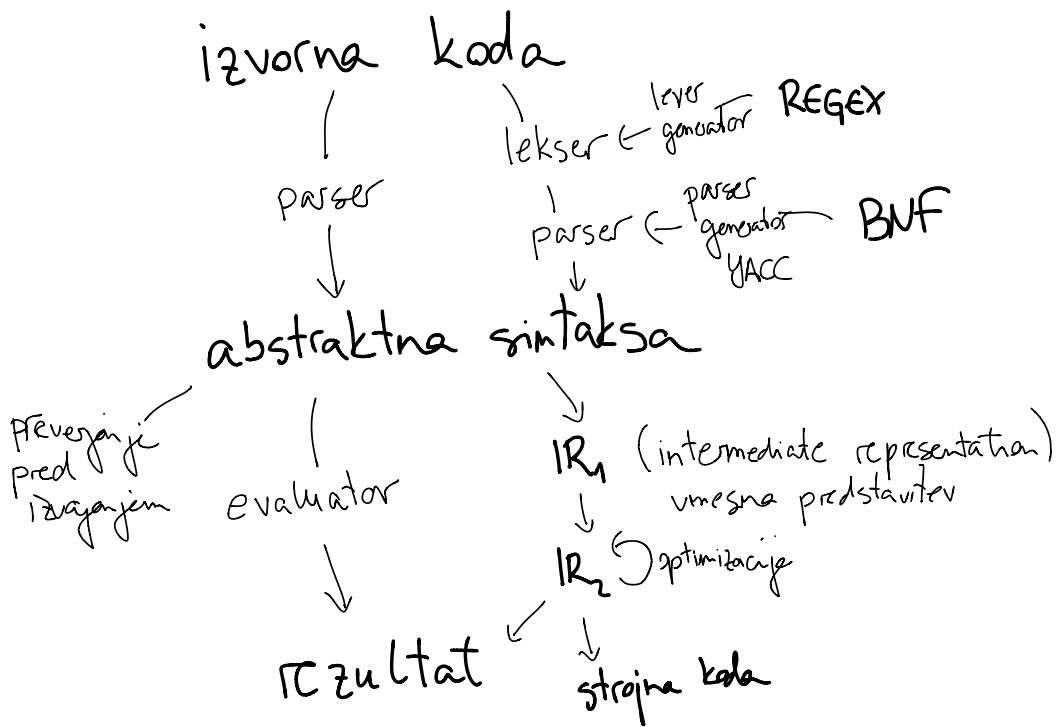 izvorna koda
lexer
generator
REGEX
lekser
parser
parser
generator
YACC
BNF
parser
abstraktna sintaksa
preverjanje
pred
izvajanjem
evaluator
IR1 (intermediate representation)
vmesna predstavitev
IR2 optimizacije
rezultat
strojna koda